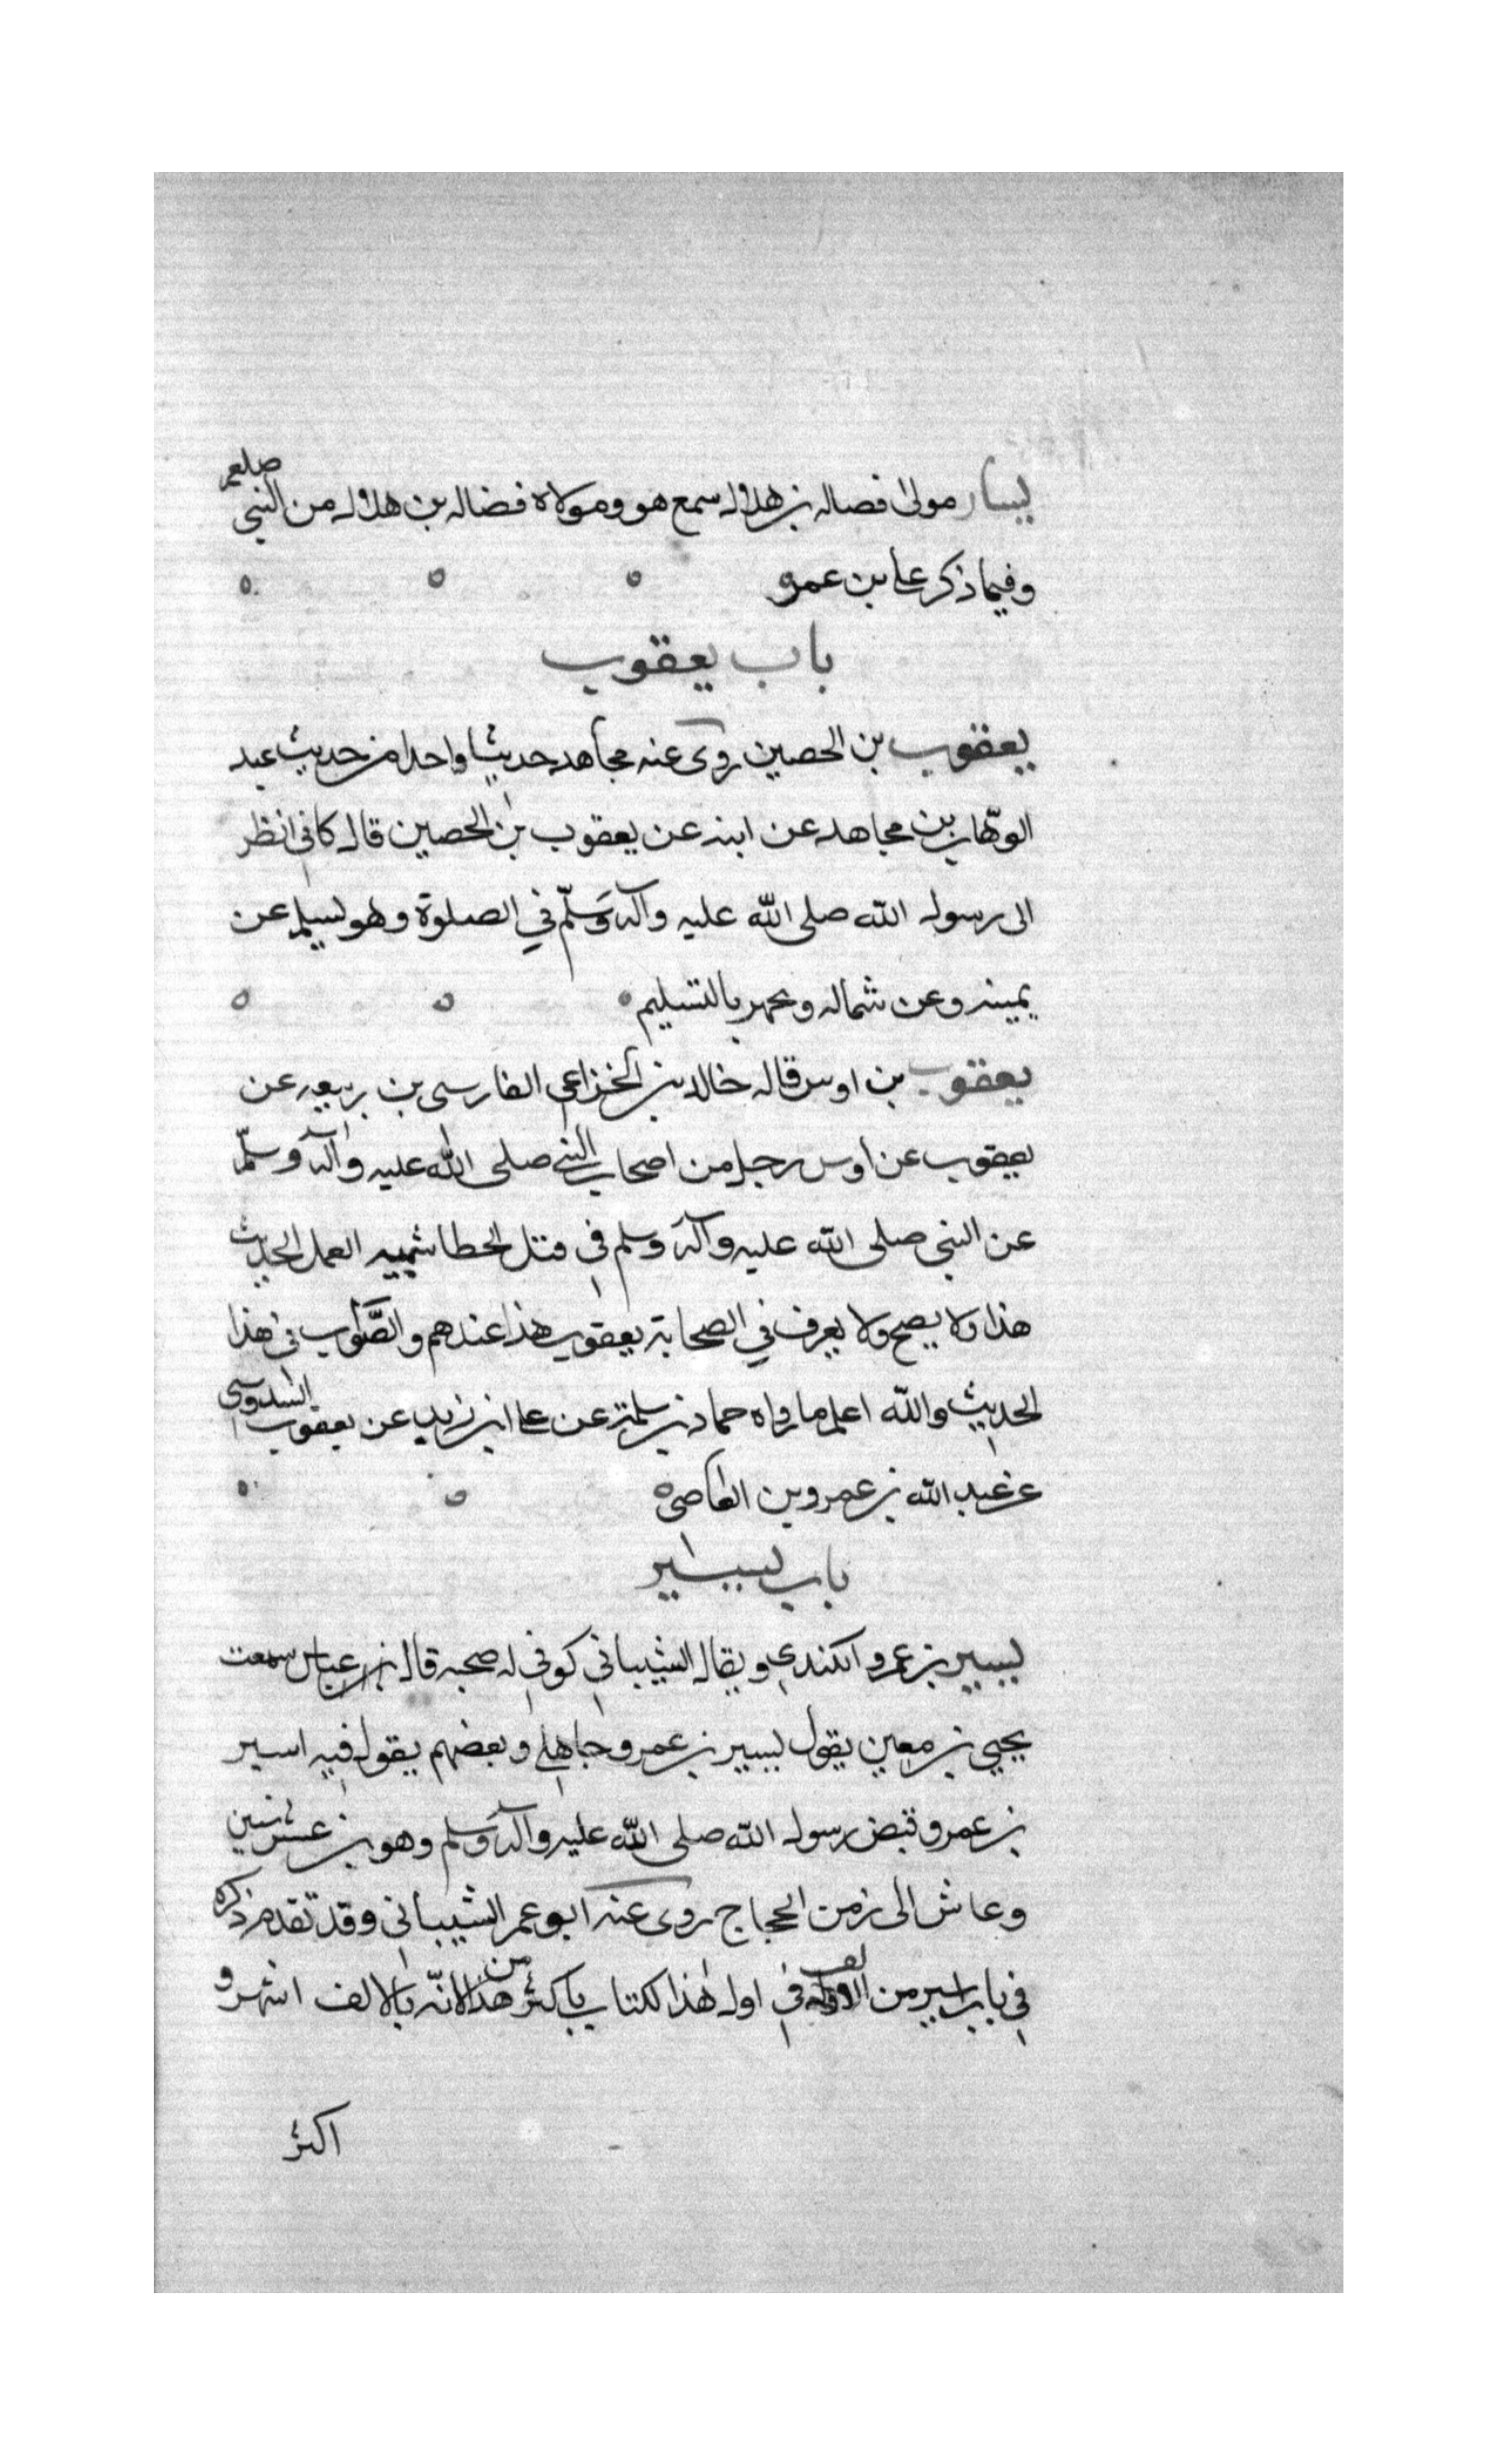 يسار مولى فضاله بن هلال سمع هو ومولاه فضاله بن هلال من النبي صلعم
وفيما ذكر على بن عمر
باب يعقوب
يعقوب بن الحصين روى عنه مجاهد حديثا واحدا من حديث عبد
الوهاب بن مجاهد عن ابنه عن يعقوب بن الحصين قال كاني انظر
الى رسول الله صلى الله عليه وآله وسلم في الصلوة وهو يسلم عن
يمينه وعن شماله ويجهر بالتسليم
يعقوب بن اوس قاله خالد بن الخزاعي الفارسي بن ربيعه عن
يعقوب عن اوس رجل من اصحاب النبي صلى الله عليه وآله وسلم
عن النبي صلى الله عليه وآله وسلم في قتل الخطا شبيه العمل الحديث
هذا ولا يصح ولا يعرف في الصحابة يعقوب هذا عندهم والصواب في هذا
الحديث والله اعلم ما رواه حماد بن سلمة عن على ابن زيد عن يعقوب السدوسي
عن عبد الله بن عمرو بن العاصي
باب يسير
يسير بن عمرو الكندي ويقال الشيباني كوفي له صحبه قال بن عباس سمعت
يحيي بن معين يقول يسير بن عمرو جاهلي وبعضهم يقول فيه اسير
بن عمرو قبض رسول الله صلى الله عليه وآله وسلم وهو بن عشر سنين
وعاش الى زمن الحجاج روى عنه ابو عمر الشيباني وقد تقدم ذكره
في باب اسير من الالف في اول هذا الكتاب باكثر من هذا لانه بالالف اشهر و
اكثر